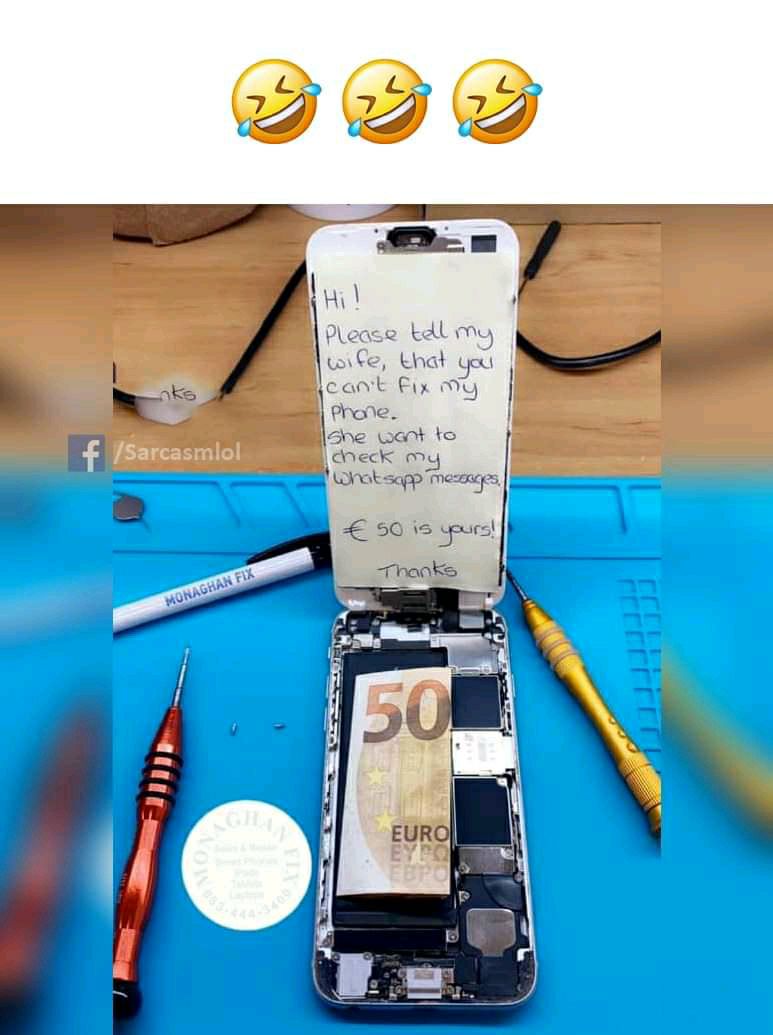 Hi!
Please tell my
wife, that you
can't fix my
Phone.
She want to
check my
Whatsapp messages.
€ 50 is yours!
Thanks
nks
f /Sarcasmlol
MONAGHAN FIX
50
EURO
ΕΥΡΩ
ЕВРО
MONAGHAN FIX
Sales & Repair
Smart Phones
iPads
Tablets
Laptops